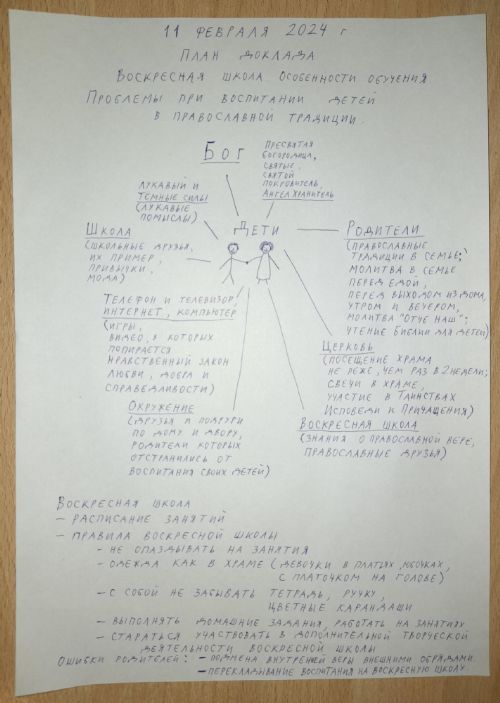 11 ФЕВРАЛЯ 2024 г
ПЛАН ДОКЛАДА
ВОСКРЕСНАЯ ШКОЛА ОСОБЕННОСТИ ОБУЧЕНИЯ
ПРОБЛЕМЫ ПРИ ВОСПИТАНИИ ДЕТЕЙ
В ПРАВОСЛАВНОЙ ТРАДИЦИИ.
БОГ
ПРЕСВЯТАЯ
БОГОРОДИЦА,
СВЯТЫЕ,
СВЯТОЙ
ПОКРОВИТЕЛЬ,
АНГЕЛ ХРАНИТЕЛЬ
ЛУКАВЫЙ И
ТЕМНЫЕ СИЛЫ
(ЛУКАВЫЕ
ПОМЫСЛЫ)
ДЕТИ
ШКОЛА
(ШКОЛЬНЫЕ ДРУЗЬЯ,
ИХ ПРИМЕР,
ПРИВЫЧКИ,
МОДА)
РОДИТЕЛИ
(ПРАВОСЛАВНЫЕ
ТРАДИЦИИ В СЕМЬЕ;
МОЛИТВА В СЕМЬЕ
ПЕРЕД ЕДОЙ,
ПЕРЕД ВЫХОДОМ ИЗ ДОМА,
УТРОМ И ВЕЧЕРОМ,
МОЛИТВА "ОТЧЕ НАШ";
ЧТЕНИЕ БИБЛИИ ДЛЯ ДЕТЕЙ)
ТЕЛЕФОН И ТЕЛЕВИЗОР,
ИНТЕРНЕТ, КОМПЬЮТЕР
(ИГРЫ,
ВИДЕО, В КОТОРЫХ
ПОПИРАЕТСЯ
НРАВСТВЕННЫЙ ЗАКОН
ЛЮБВИ, ДОБРА И
СПРАВЕДЛИВОСТИ)
ЦЕРКОВЬ
(ПОСЕЩЕНИЕ ХРАМА
НЕ РЕЖЕ, ЧЕМ РАЗ В 2 НЕДЕЛИ;
СВЕЧИ В ХРАМЕ,
УЧАСТИЕ В ТАИНСТВАХ
ИСПОВЕДИ И ПРИЧАЩЕНИЯ)
ОКРУЖЕНИЕ
(ДРУЗЬЯ И ПОДРУГИ
ПО ДОМУ И ДВОРУ,
РОДИТЕЛИ КОТОРЫХ
ОТСТРАНИЛИСЬ ОТ
ВОСПИТАНИЯ СВОИХ ДЕТЕЙ)
ВОСКРЕСНАЯ ШКОЛА
(ЗНАНИЯ О ПРАВОСЛАВНОЙ ВЕРЕ,
ПРАВОСЛАВНЫЕ ДРУЗЬЯ)
ВОСКРЕСНАЯ ШКОЛА
- РАСПИСАНИЕ ЗАНЯТИЙ
- ПРАВИЛА ВОСКРЕСНОЙ ШКОЛЫ
- НЕ ОПАЗДЫВАТЬ НА ЗАНЯТИЯ
- ОДЕЖДА КАК В ХРАМЕ (ДЕВОЧКИ В ПЛАТЬЯХ, ЮБОЧКАХ,
С ПЛАТОЧКОМ НА ГОЛОВЕ)
- С СОБОЙ НЕ ЗАБЫВАТЬ ТЕТРАДЬ, РУЧКУ,
ЦВЕТНЫЕ КАРАНДАШИ
- ВЫПОЛНЯТЬ ДОМАШНИЕ ЗАДАНИЯ, РАБОТАТЬ НА ЗАНЯТИЯХ
- СТАРАТЬСЯ УЧАСТВОВАТЬ В ДОПОЛНИТЕЛЬНОЙ ТВОРЧЕСКОЙ
ДЕЯТЕЛЬНОСТИ ВОСКРЕСНОЙ ШКОЛЫ
ОШИБКИ РОДИТЕЛЕЙ: - ПОДМЕНА ВНУТРЕННЕЙ ВЕРЫ ВНЕШНИМИ ОБРЯДАМИ.
- ПЕРЕКЛАДЫВАНИЕ ВОСПИТАНИЯ НА ВОСКРЕСНУЮ ШКОЛУ.